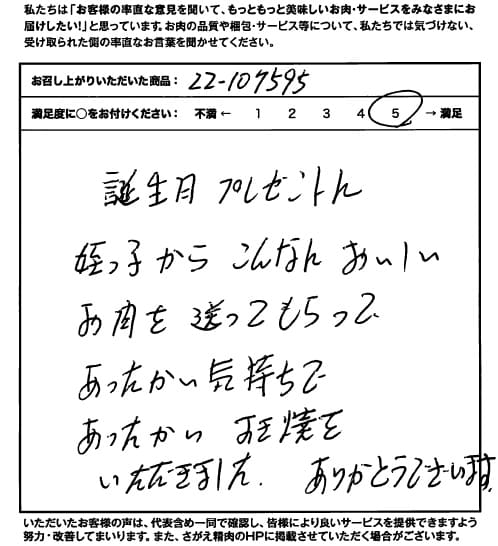 私たちは「お客様の率直な意見を聞いて、もっともっと美味しいお肉・サービスをみなさまにお
届けしたい!」と思っています。お肉の品質や梱包・サービス等について、私たちでは気づけない、
受け取られた側の率直なお言葉を聞かせてください。
お召し上がりいただいた商品: 22-107595
満足度に○をお付けください: 不満 ← 1 2 3 4 5 → 満足
誕生月 プレゼントに
姪っ子から こんなに おいしい
お肉を 送ってもらって
あったかい気持ちで
あったかい すき焼を
いただきました. ありがとうございます.
いただいたお客様の声は、代表含め一同で確認し、皆様により良いサービスを提供できますよう
努力・改善してまいります。また、さがえ精肉のHPに掲載させていただく場合がございます。